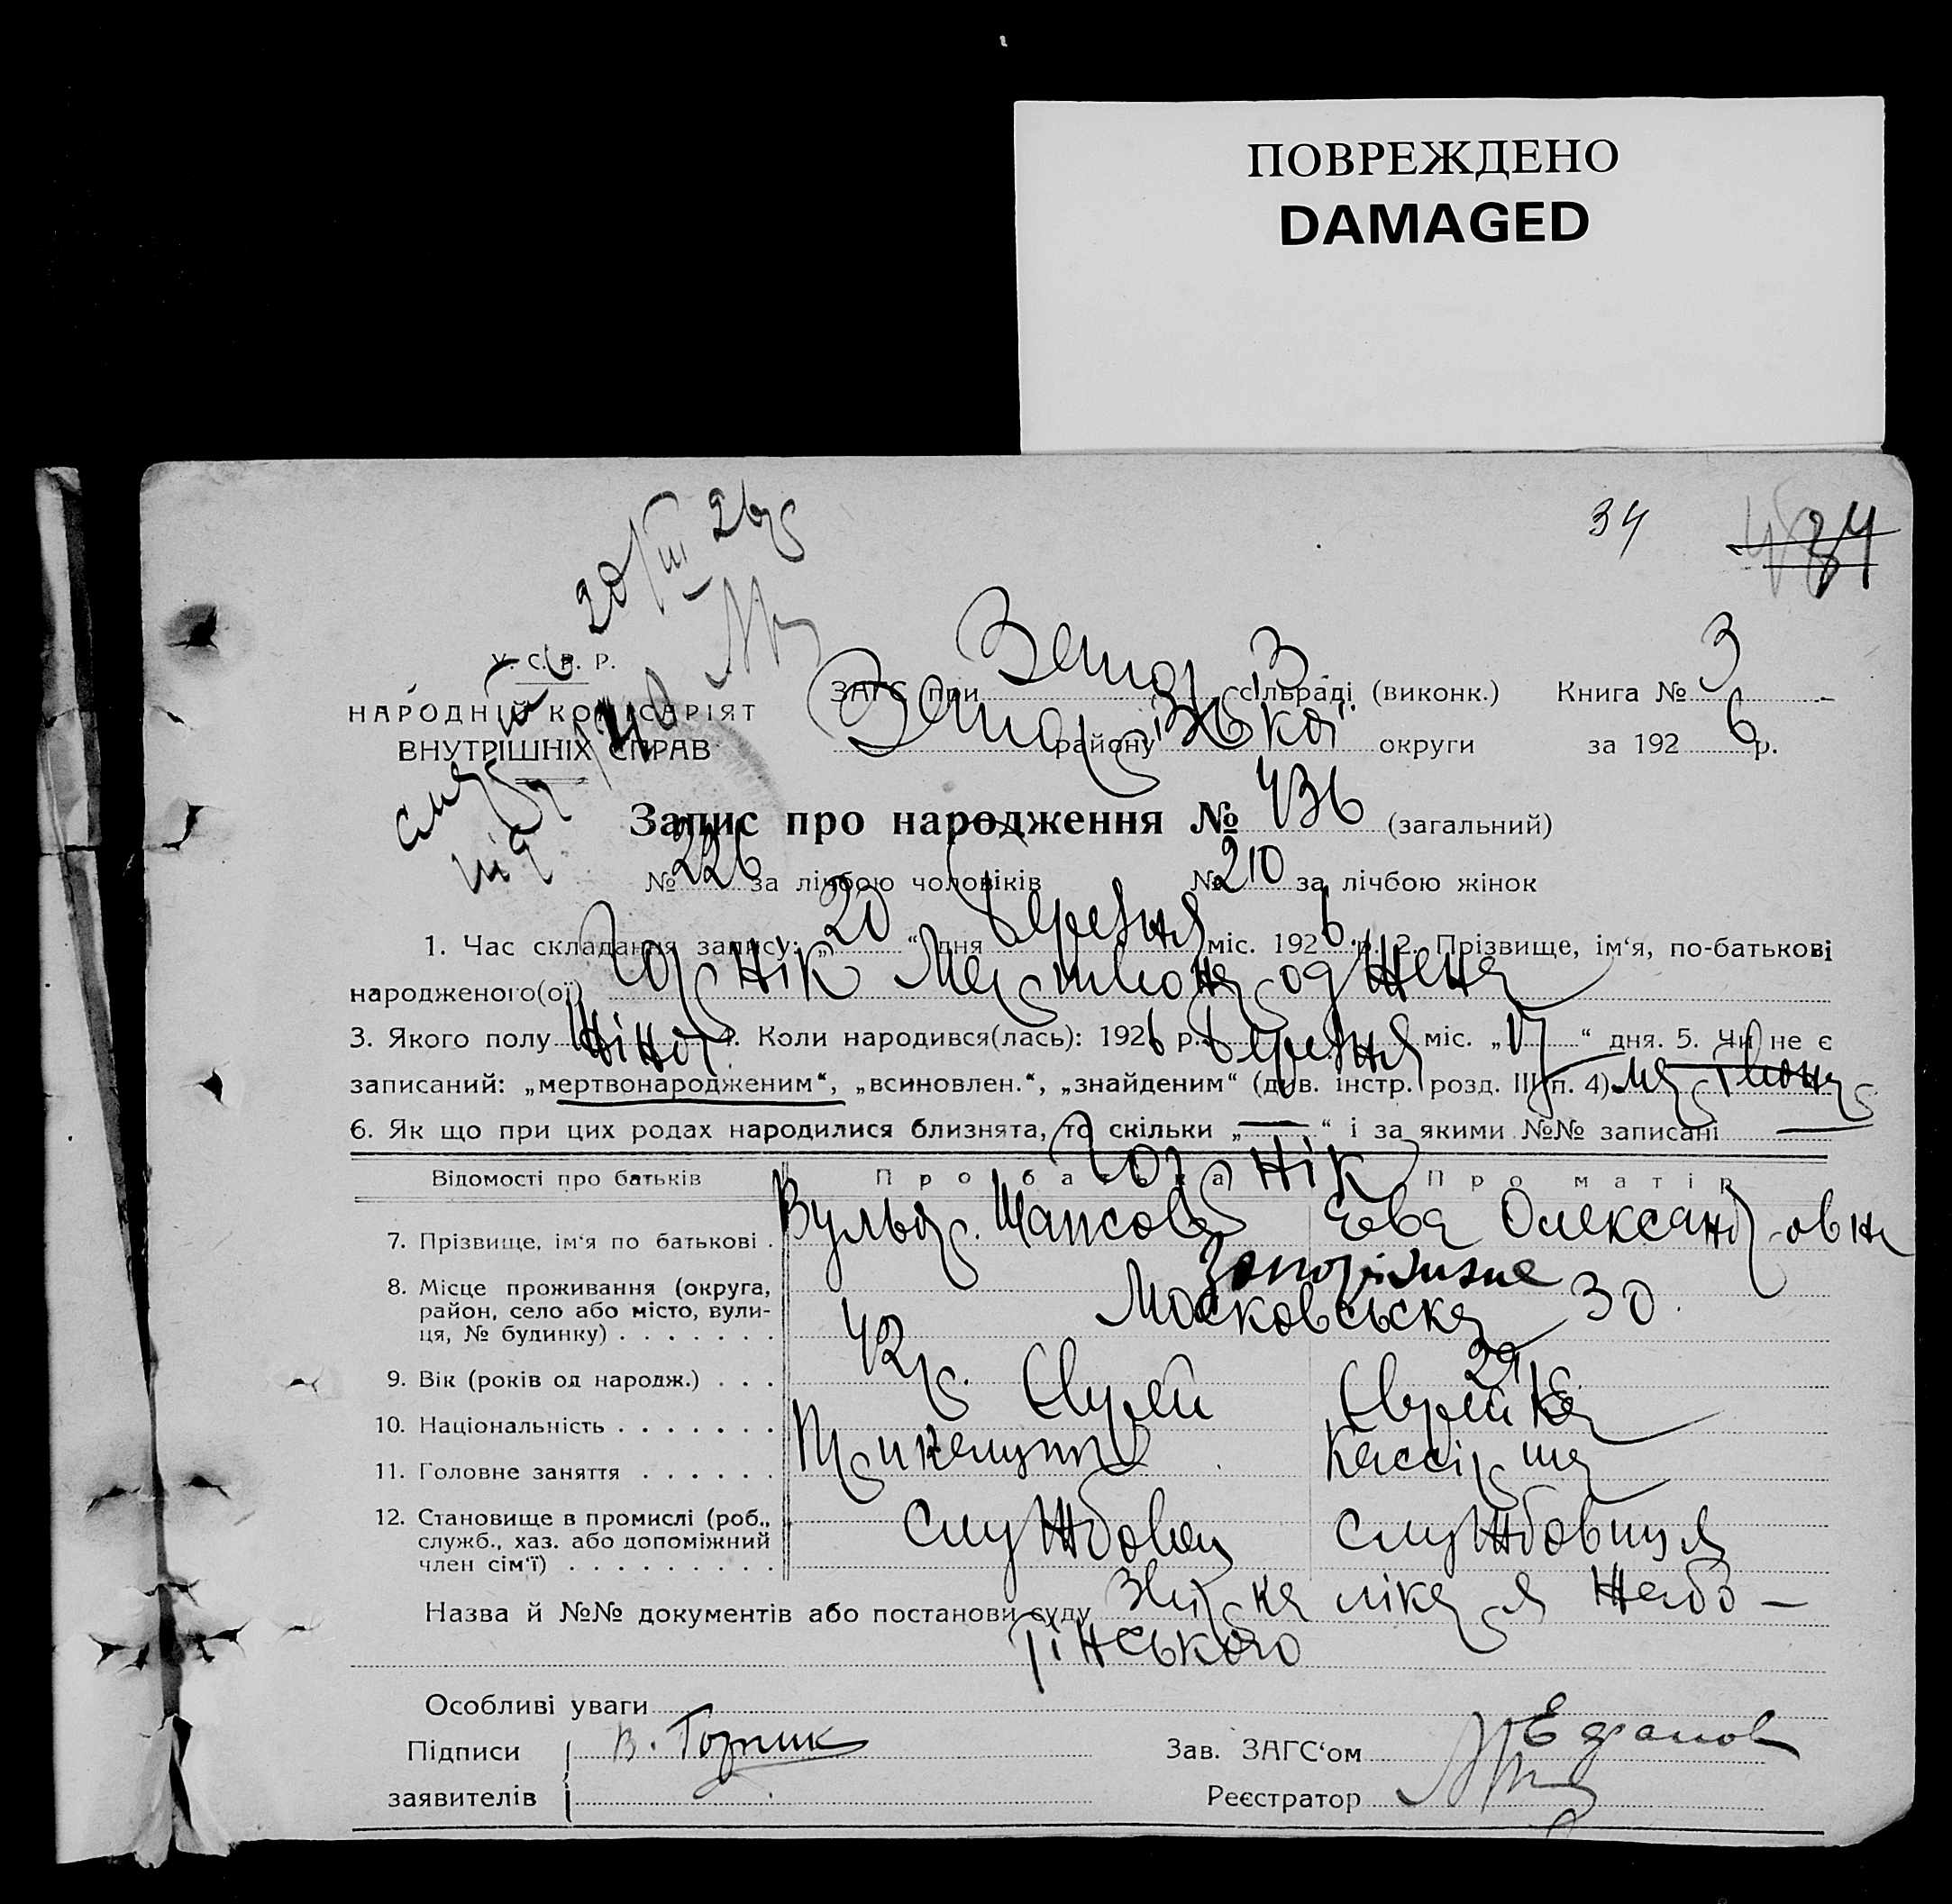 ПОВРЕЖДЕНО
DAMAGED
34
20/III 26 р
У. С. Р. Р.
НАРОДНІЙ КОМІСАРІЯТ
ВНУТРІШНІХ СПРАВ
ЗАГС при Запоріз. сільраді (виконк.) Книга № 3
району Запорізької округи за 1926 р.
Запис про народження № 436 (загальний)
№ 226 за лічбою чоловіків № 210 за лічбою жінок
1. Час складання запису: „20“ дня березня міс. 1926 р. 2. Прізвище, ім‘я, по-батькові
народженого(ої) Горнік Мертвонароджена
3. Якого полу жіноч. 4. Коли народився(лась): 1926 р. березня міс. „17“ дня. 5. Чи не є
записаний: „мертвонародженим“, „всиновлен.“, „знайденим“ (див. інстр. розд. III п. 4)
6. Як що при цих родах народилися близнята, то скільки „—“ і за якими №№ записані —
Відомості про батьків Про батька Горнік Про матір
7. Прізвище, ім‘я по батькові . Вульф. Шапсовів Єва Олександровна
8. Місце проживання (округа, район, село або місто, вулиця, № будинку) . . . . . . . Запоріжжє
Московська 30
9. Вік (років од народж.) . . . 42 р. 29 р.
10. Національність . . . . . . . Єврей Єврейка
11. Головне заняття . . . . . . Касcірша
12. Становище в промислі (роб., служб., хаз. або допоміжний член сім‘ї) . . . . . . . . . Службовец Службовиця
Назва й №№ документів або постанови суду лікаря Жабо-
тінського
Особливі уваги
Підписи В. Горник Зав. ЗАГС‘ом
заявителів Реєстратор